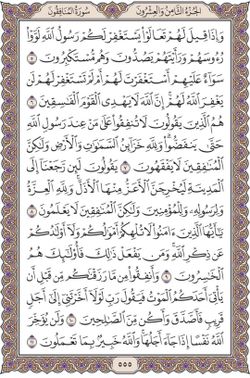 الجزء الثامن والعشرون سورة المنافقون
وَإِذَا قِيلَ لَهُمْ تَعَالَوْا۟ يَسْتَغْفِرْ لَكُمْ رَسُولُ ٱللَّهِ لَوَّوْا۟
رُءُوسَهُمْ وَرَأَيْتَهُمْ يَصُدُّونَ وَهُم مُّسْتَكْبِرُونَ ٥
سَوَآءٌ عَلَيْهِمْ أَسْتَغْفَرْتَ لَهُمْ أَمْ لَمْ تَسْتَغْفِرْ لَهُمْ لَن
يَغْفِرَ ٱللَّهُ لَهُمْ إِنَّ ٱللَّهَ لَا يَهْدِى ٱلْقَوْمَ ٱلْفَٰسِقِينَ ٦
هُمُ ٱلَّذِينَ يَقُولُونَ لَا تُنفِقُوا۟ عَلَىٰ مَنْ عِندَ رَسُولِ ٱللَّهِ
حَتَّىٰ يَنفَضُّوا۟ وَلِلَّهِ خَزَآئِنُ ٱلسَّمَٰوَٰتِ وَٱلْأَرْضِ وَلَٰكِنَّ
ٱلْمُنَٰفِقِينَ لَا يَفْقَهُونَ ٧ يَقُولُونَ لَئِن رَّجَعْنَآ إِلَى
ٱلْمَدِينَةِ لَيُخْرِجَنَّ ٱلْأَعَزُّ مِنْهَا ٱلْأَذَلَّ وَلِلَّهِ ٱلْعِزَّةُ
وَلِرَسُولِهِۦ وَلِلْمُؤْمِنِينَ وَلَٰكِنَّ ٱلْمُنَٰفِقِينَ لَا يَعْلَمُونَ ٨
يَٰٓأَيُّهَا ٱلَّذِينَ ءَامَنُوا۟ لَا تُلْهِكُمْ أَمْوَٰلُكُمْ وَلَآ أَوْلَٰدُكُمْ
عَن ذِكْرِ ٱللَّهِ وَمَن يَفْعَلْ ذَٰلِكَ فَأُو۟لَٰٓئِكَ هُمُ
ٱلْخَٰسِرُونَ ٩ وَأَنفِقُوا۟ مِن مَّا رَزَقْنَٰكُم مِّن قَبْلِ أَن
يَأْتِىَ أَحَدَكُمُ ٱلْمَوْتُ فَيَقُولَ رَبِّ لَوْلَآ أَخَّرْتَنِىٓ إِلَىٰٓ أَجَلٍ
قَرِيبٍ فَأَصَّدَّقَ وَأَكُن مِّنَ ٱلصَّٰلِحِينَ ١٠ وَلَن يُؤَخِّرَ
ٱللَّهُ نَفْسًا إِذَا جَآءَ أَجَلُهَا وَٱللَّهُ خَبِيرٌۢ بِمَا تَعْمَلُونَ ١١
٥٥٥